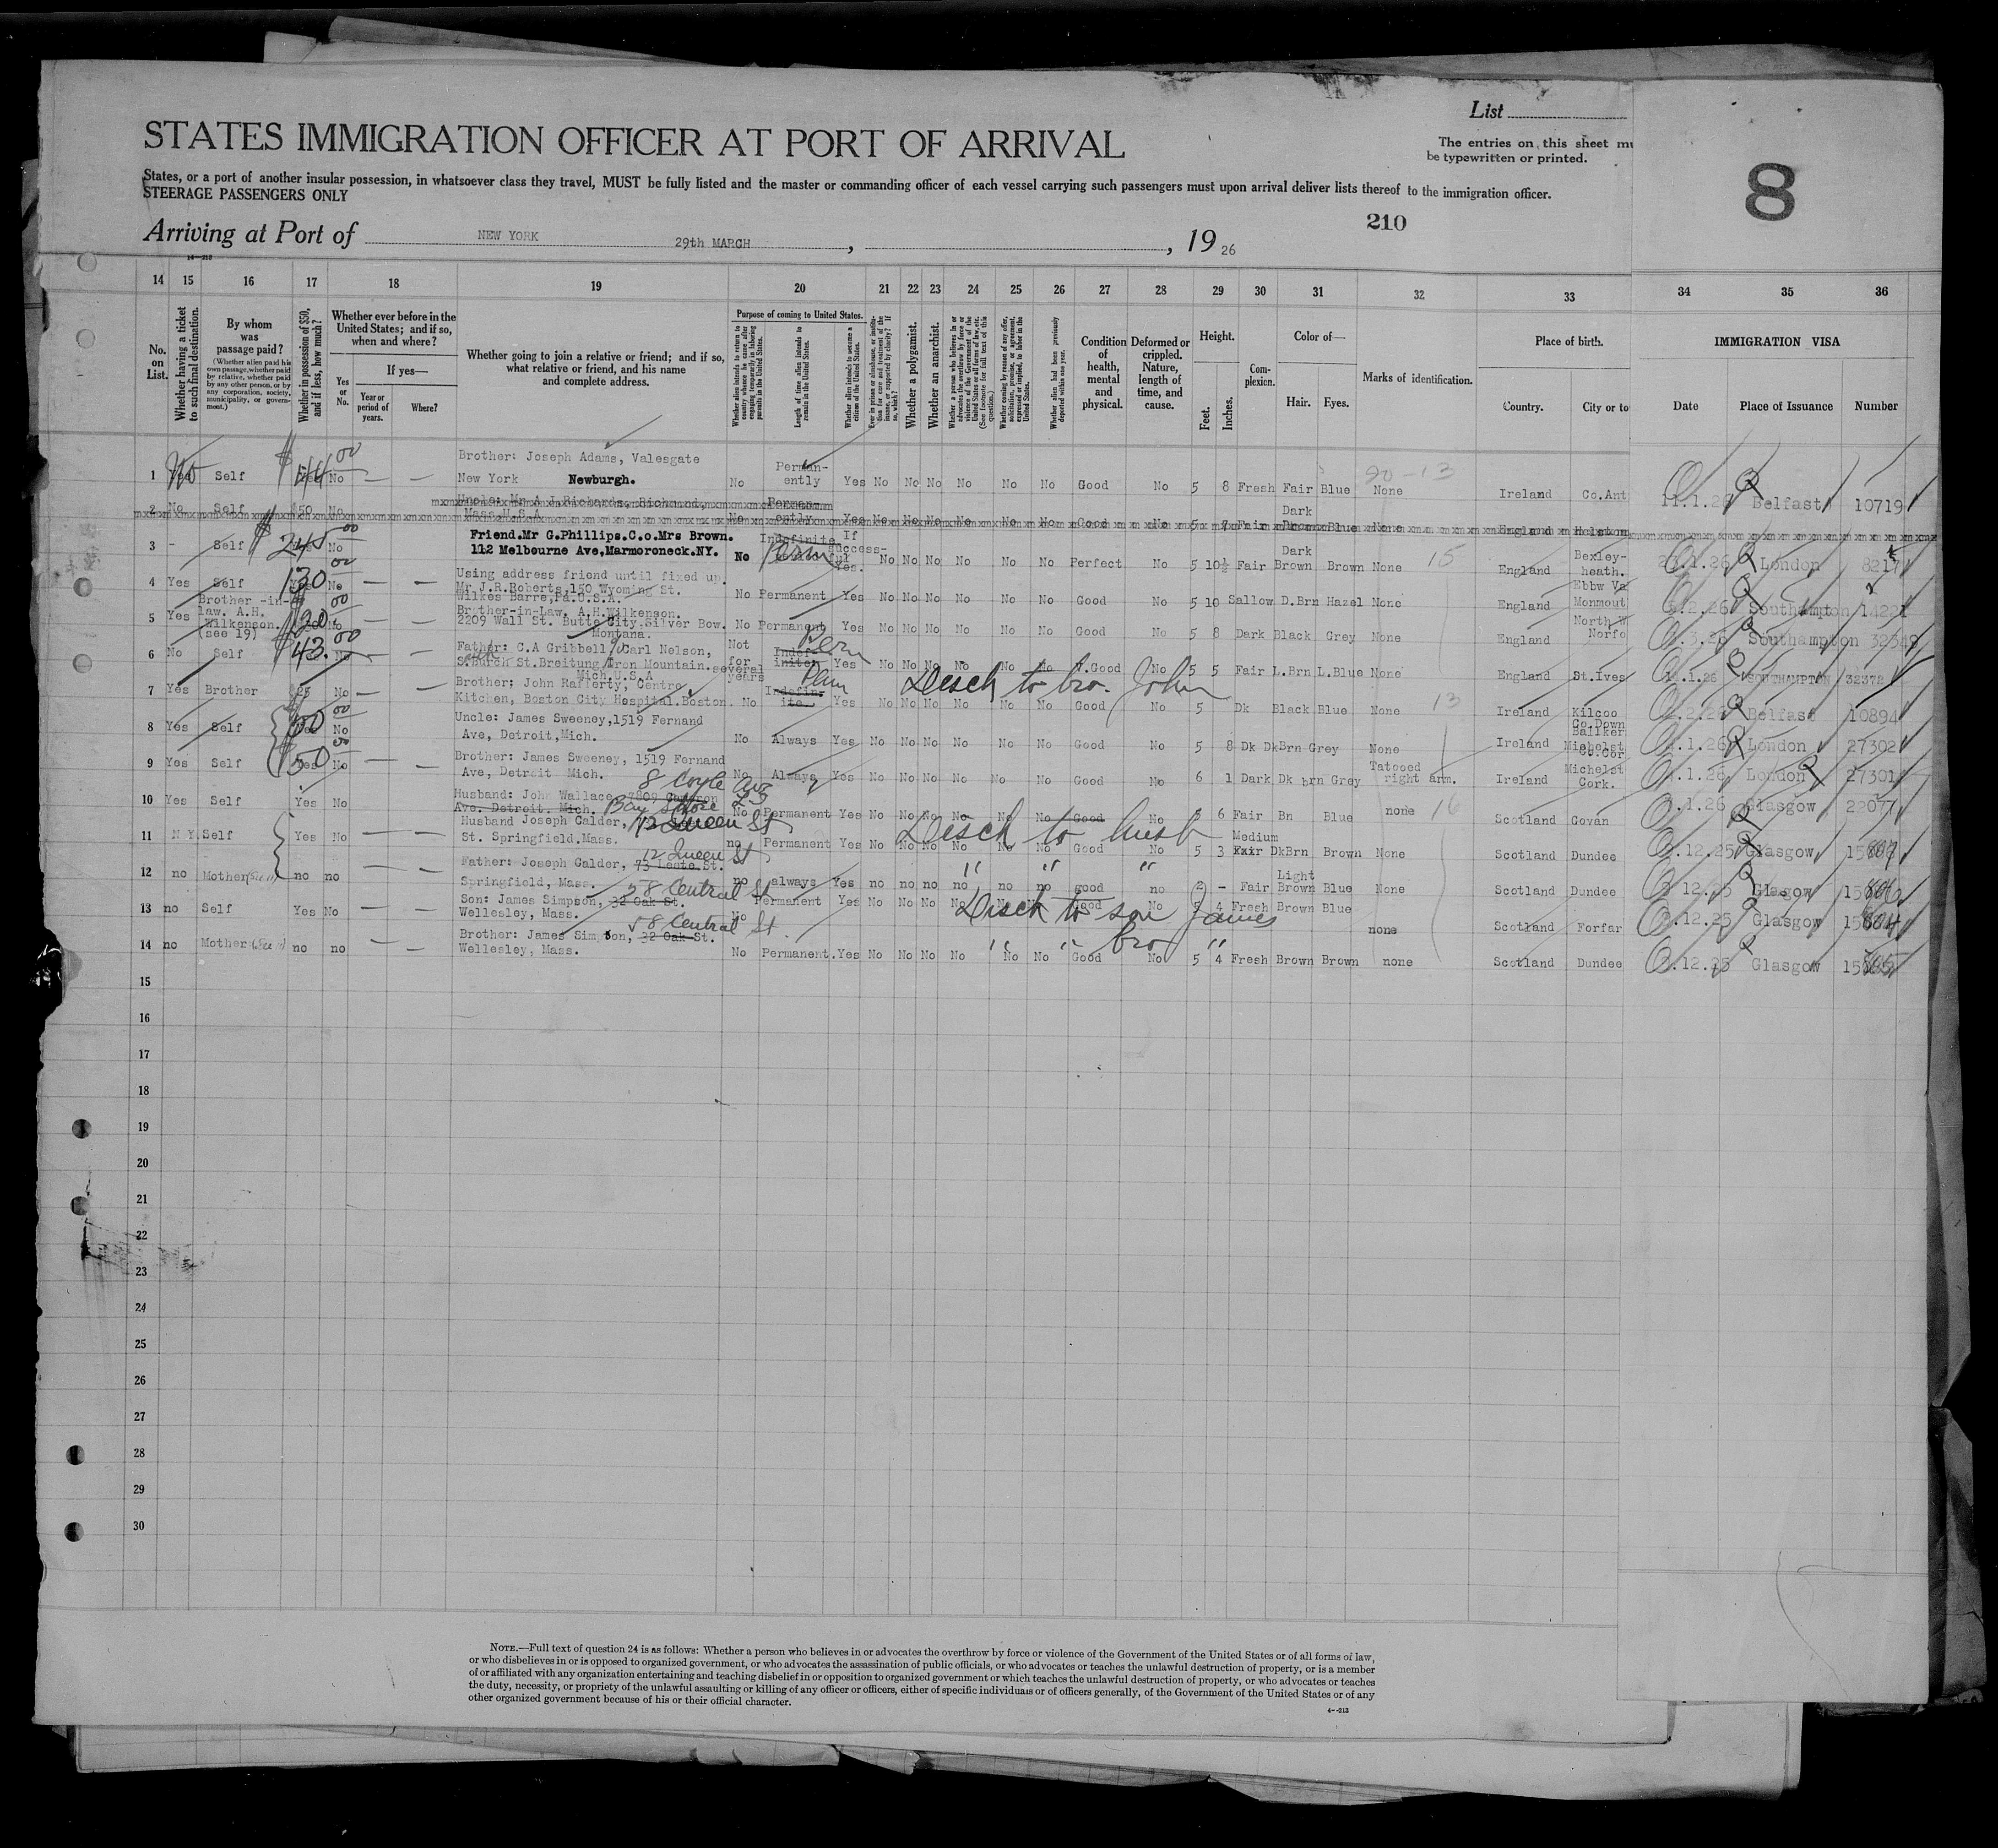 List
STATES IMMIGRATION OFFICER AT PORT OF ARRIVAL
The entries on this sheet mu
be typewritten or printed.
8
States, or a port of another insular possession, in whatsoever class they travel, MUST be fully listed and the master or commanding officer of each vessel carrying such passengers must upon arrival deliver lists thereof to the immigration officer.
STEERAGE PASSENGERS ONLY
210
Arriving at Port of NEW YORK 29th MARCH, , 19 26
14 15 16 17 18 19 20 21 22 23 24 25 26 27 28 29 30 31 32 33 34 35 36
No. on List.
Whether having a ticket to such final destination.
By whom was passage paid?
(Whether alien paid his own passage, whether paid by relative, whether paid by any other person, or by any corporation, society, municipality, or government.)
Whether in possession of $50, and if less, how much?
Whether ever before in the United States; and if so, when and where?
Yes or No.
If yes—
Year or period of years.
Where?
Whether going to join a relative or friend; and if so, what relative or friend, and his name and complete address.
Purpose of coming to United States.
Whether alien intends to return to country whence he came after engaging temporarily in laboring pursuits in the United States.
Length of time alien intends to remain in the United States.
Whether alien intends to become a citizen of the United States.
Whether a polygamist.
Whether an anarchist.
Condition of health, mental and physical.
Deformed or crippled. Nature, length of time, and cause.
Height.
Feet. Inches.
Complexion.
Color of—
Hair. Eyes.
Marks of identification.
Place of birth.
Country. City or to
IMMIGRATION VISA
Date Place of Issuance Number
1 No Self $44 00 No — — Brother: Joseph Adams, Valesgate
New York Newburgh. No Perman-ently Yes No No No No No No Good No 5 8 Fresh Fair Blue None Ireland Co.Ant 11.1.26 Belfast 10719
2 No Self $50 No Uncle: Mr A.J.Richards, Richmond,
Mass.U.S.A. No Perman-ently Yes No No No No No No Good No 5 7 Fair Dark Brown Blue None England Helston
3 - Self $245 00 No Friend.Mr G.Phillips.C.o.Mrs Brown.
112 Melbourne Ave,Marmoroneck.NY. No Indefinite Perm If success-ful Yes. No No No No No No Perfect No 5 10½ Fair Dark Brown Brown None 15 England Bexley-heath. London 8217
4 Yes Self 130 00 No — — Using address friend until fixed up.
Mr J.R.Roberts,150 Wyoming St.
Wilkes Barre,Pa.U.S.A. No Permanent Yes No No No No No No Good No 5 10 Sallow D.Brn Hazel None England Ebbw Va Monmout .2.26 Southampton 14221
5 Yes Brother -in-law. A.H. Wilkenson. (see 19) $20 00 No Brother-in-Law, A.H.Wilkenson.
2209 Wall St. Butte City,Silver Bow.
Montana. No Permanent Yes No No No No No No Good No 5 8 Dark Black Grey None England North W Norfo .3.26 Southampton 32549
6 No Self 43. 00 No — — Father: C.A Gribbell c/o Carl Nelson,
St.Breitung Iron Mountain.
Mich.U.S.A Not for several years Indef-inite Perm Yes No No No No No No V.Good No 5 5 Fair L.Brn L.Blue None England St.Ives .1.26 SOUTHAMPTON 32372
7 Yes Brother $25 No — — Brother; John Rafferty, Centre
Kitchen, Boston City Hospital.Boston. No Indefin-ite Perm Yes No No No No No No Good No 5 Dk Black Blue None 13 Ireland Kilcoo Co.Down .2.26 Belfast 10894
Disch to bro. John
8 Yes Self 50 00 No Uncle: James Sweeney,1519 Fernand
Ave, Detroit,Mich. No Always Yes No No No No No No Good No 5 8 Dk DkBrn Grey None Ireland Michelst Co.Cor .1.26 London 27302
9 Yes Self 50 00 No — — Brother: James Sweeney, 1519 Fernand
Ave, Detroit Mich. No Always Yes No No No No No No Good No 6 1 Dark Dk brn Grey Tatooed right arm. Ireland Michelst Cork. .1.26 London 27301
10 Yes Self Yes No Husband: John Wallace, 8 Coyle Ave
Ave. Detroit. Mich. Bay Shore No Permanent Yes No No No No No No Good No 5 6 Fair Bn Blue none 16 Scotland Govan .1.26 Glasgow 22077
Disch to husb
11 N.Y. Self Yes No — — Husband Joseph Calder, 12 Queen St
St. Springfield,Mass. no Permanent Yes No No No No No No Good No 5 3 Medium DkBrn Brown None Scotland Dundee .12.25 Glasgow
12 no Mother no no — — Father: Joseph Calder, 73 Leete St. 12 Queen St
Springfield, Mass. no always Yes no no no no no no good no 2 - Fair Light Brown Blue None Scotland Dundee .12.25 Glasgow
" " "
13 no Self Yes No — — Son: James Simpson, 32 Oak St. 58 Central St
Wellesley, Mass. No Permanent Yes No No No No No No Good No 5 4 Fresh Brown Blue none Scotland Forfar .12.25 Glasgow
Disch to son James
14 no Mother no no — — Brother: James Simpson, 32 Oak St. 58 Central St.
Wellesley, Mass. No Permanent. Yes No No No No No No Good No 5 4 Fresh Brown Brown none Scotland Dundee .12.25 Glasgow
" " bro "
15
16
17
18
19
20
21
22
23
24
25
26
27
28
29
30
NOTE.—Full text of question 24 is as follows: Whether a person who believes in or advocates the overthrow by force or violence of the Government of the United States or of all forms of law,
or who disbelieves in or is opposed to organized government, or who advocates the assassination of public officials, or who advocates or teaches the unlawful destruction of property, or is a member
of or affiliated with any organization entertaining and teaching disbelief in or opposition to organized government or which teaches the unlawful destruction of property, or who advocates or teaches
the duty, necessity, or propriety of the unlawful assaulting or killing of any officer or officers, either of specific individuals or of officers generally, of the Government of the United States or of any
other organized government because of his or their official character.
4--213